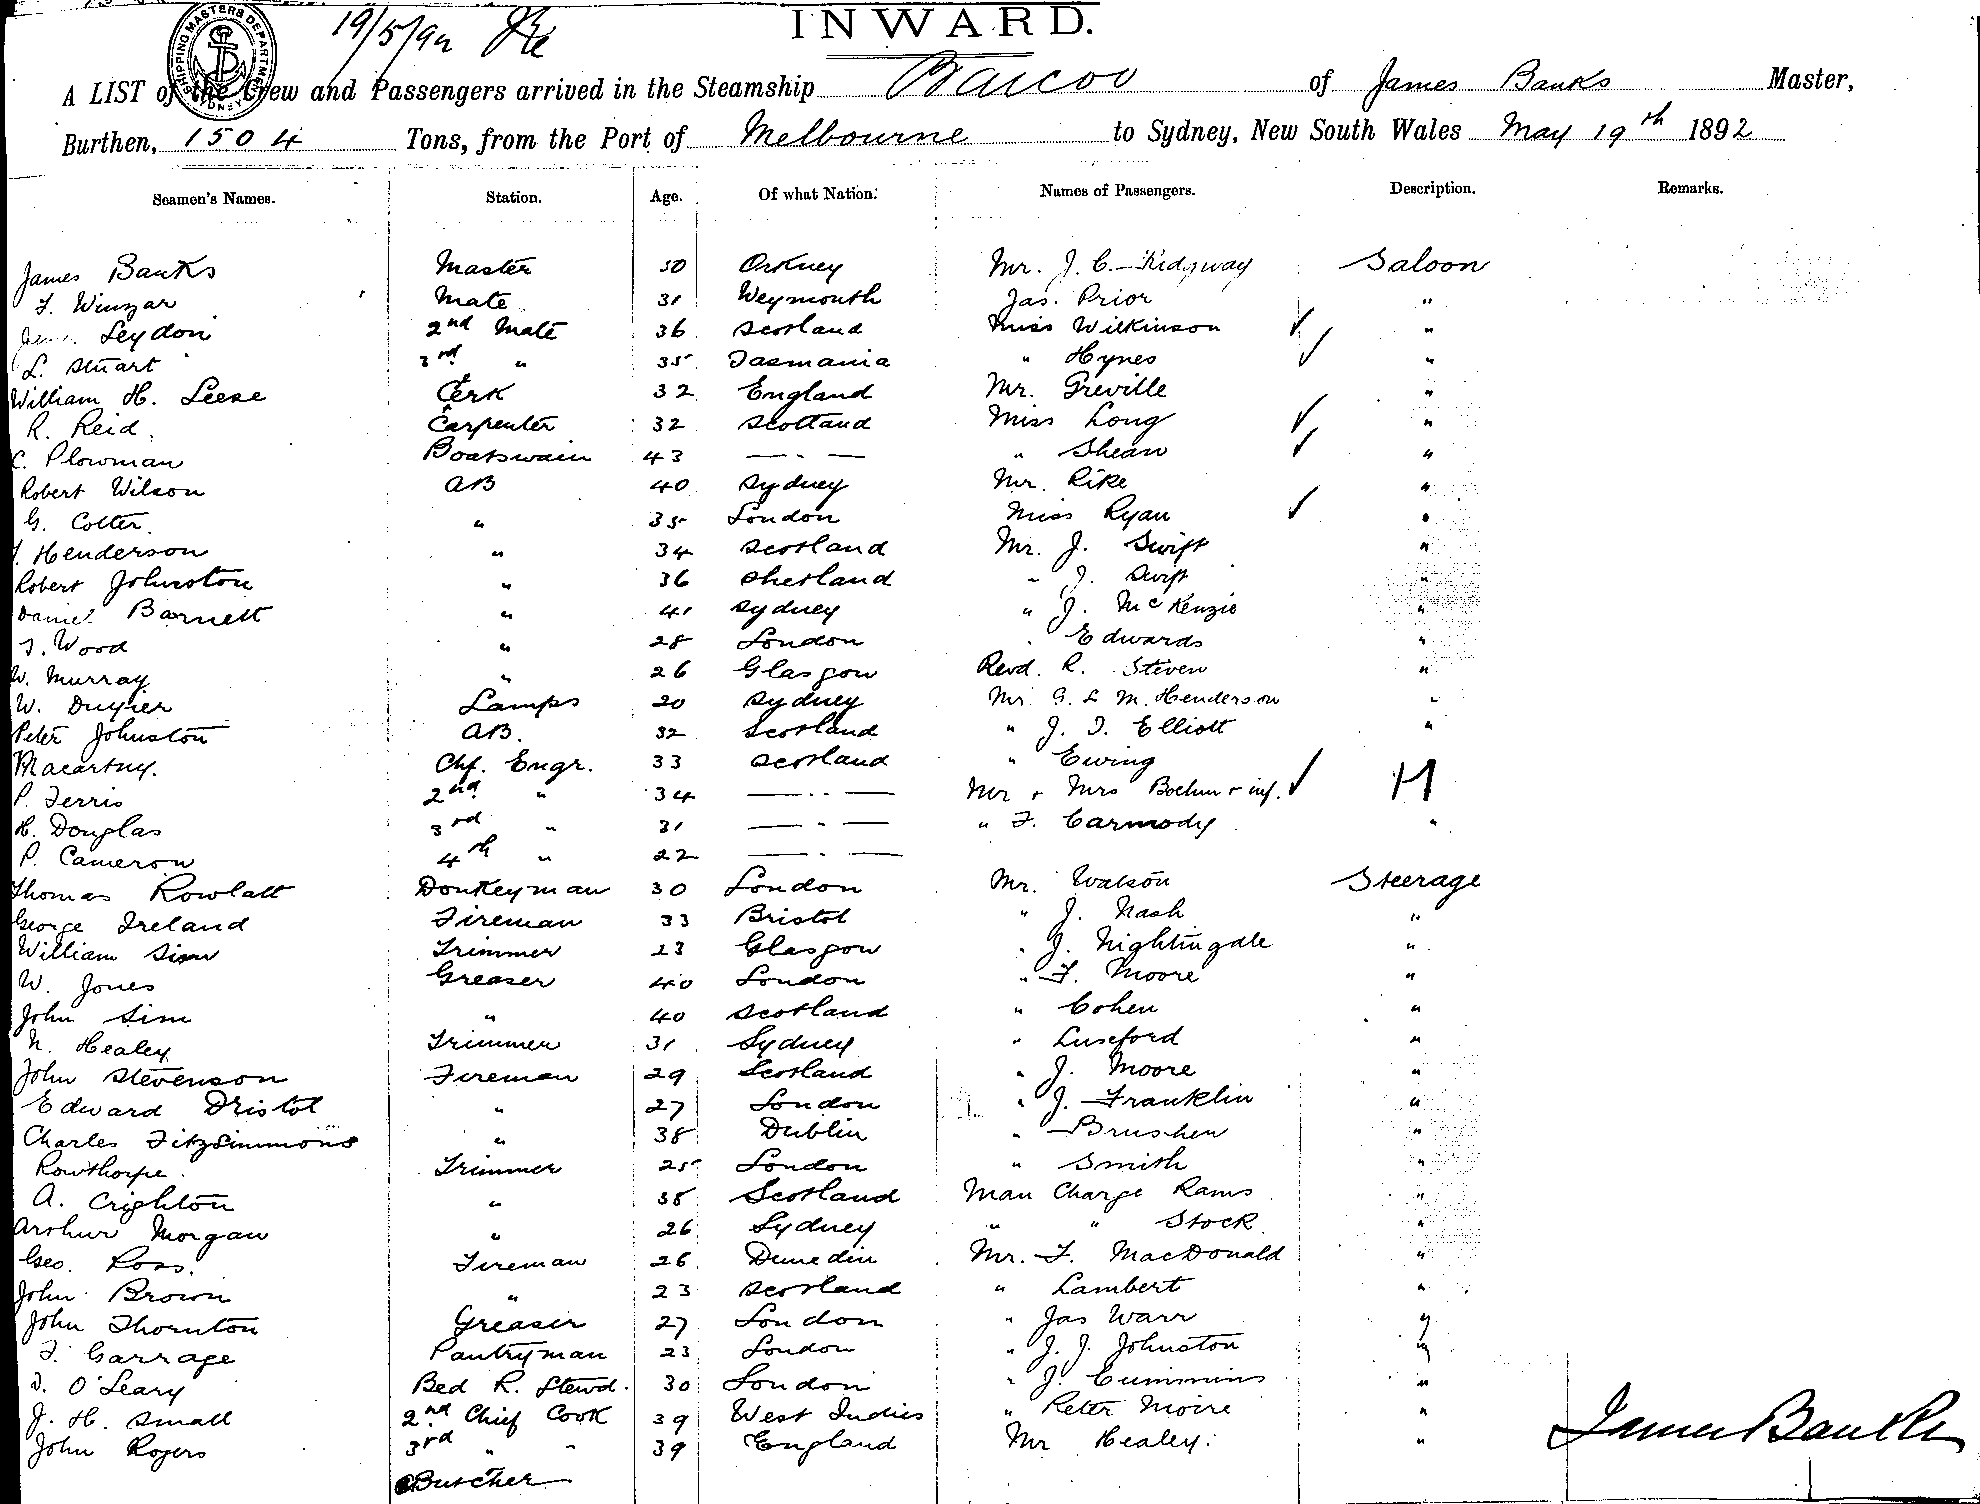 19/5/92
SHIPPING MASTERS DEPARTMENT SYDNEY
INWARD.
A LIST of the Crew and Passengers arrived in the Steamship Barcoo of James Banks Master,
Burthen, 1504 Tons, from the Port of Melbourne to Sydney, New South Wales May 19th 1892
Seamen's Names. Station. Age. Of what Nation. Names of Passengers. Description. Remarks.
James Banks Master 50 Orkney Mr. J. C. Ridgway Saloon
F. Winzar Mate 31 Weymouth Jas. Prior "
Leydon 2nd Mate 36 Scotland Miss Wilkinson ✓ "
L. Stuart 3rd " 35 Tasmania " Hynes ✓ "
William H. Leese Cerk 32 England Mr. Greville "
R. Reid. Carpenter 32 Scotland Miss Long ✓ "
C. Plowman Boatswain 43 — " — " Shean ✓ "
Robert Wilson AB 40 Sydney Mr. Rike "
G. Cotter. " 35 London Miss Ryan ✓ "
Henderson " 34 Scotland Mr. J. Swift "
Robert Johnston " 36 Shetland " J. Swift "
Daniel Barnett " 41 Sydney " J. McKenzie "
Wood " 28 London " Edwards "
W. Murray " 26 Glasgow Revd. R. Steven "
W. Lamps 20 Sydney Mr G. L. M. Henderson "
Peter Johnston AB. 32 Scotland " J. T. Elliott "
Macartny. Chf. Engr. 33 Scotland " Ewing
P. Ferris 2nd " 34 — " — Mr + Mrs Boehm + inf. ✓
H. Douglas 3rd " 31 — " — " F. Carmody "
P. Cameron 4th " 22 — " —
Thomas Rowlatt Donkeyman 30 London Mr. Watson Steerage
George Ireland Fireman 33 Bristol " J. Nash "
William Sim Trimmer 23 Glasgow " J. Nightingale "
W. Jones Greaser 40 London " F. Moore "
John Sim " 40 Scotland " Cohen "
N. Healey Trimmer 31 Sydney " Luseford "
John Stevenson Fireman 29 Scotland " J. Moore "
Edward Dristol " 27 London " J. Franklin "
Charles Fitzsimmons " 38 Dublin " Brushen "
Rowthorpe. Trimmer 25 London " Smith "
A. Crighton " 38 Scotland Man Charge Rams "
Arthur Morgan " 26 Sydney " " Stock "
Geo. Ross. Fireman 26 Dunedin Mr. F. MacDonald "
John Brown " 23 Scotland " Lambert "
John Thornton Greaser 27 London " Jas Warr "
F. Garrage Pantryman 23 London " J. J. Johnston "
D. O'Leary Bed R. Stewd. 30 London " J. Cummins "
J. H. Small 2nd Chief Cook 39 West Indies " Peter Moire "
John Rogers 3rd " " 39 England Mr Healey. "
Butcher
James Banks